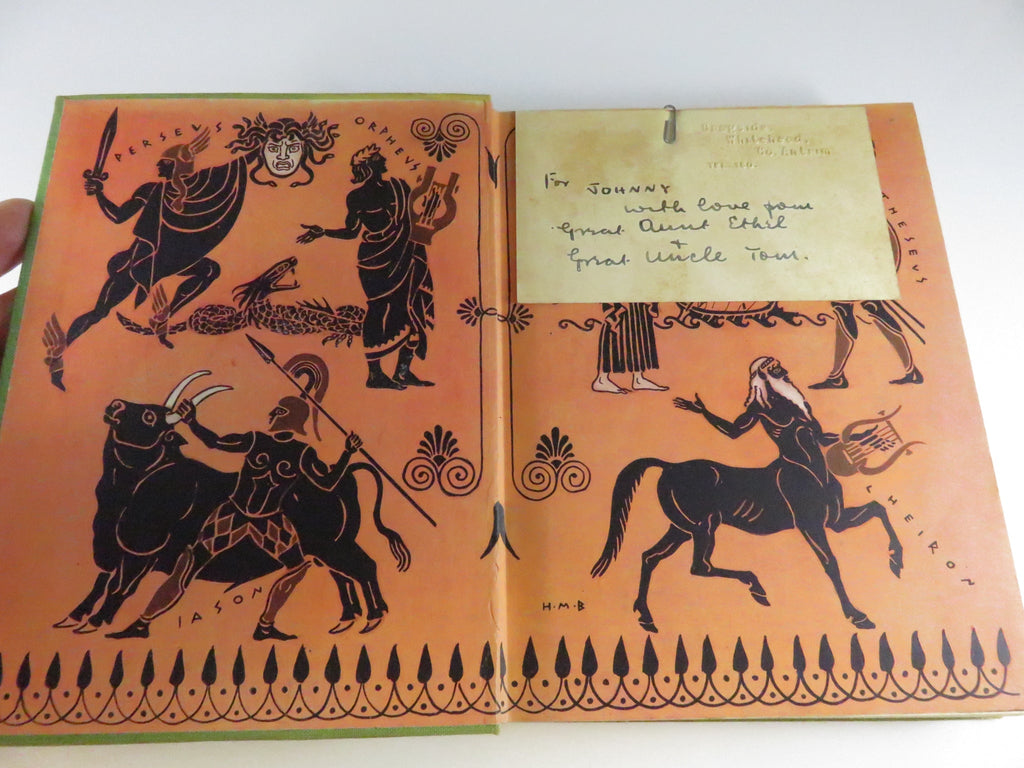 PERSEVS
ORPHEVS
IASON
Whitehead,
Co. Antrim
For JOHNNY
with love from
Great Aunt Ethel
+
Great Uncle Tom.
THESEVS
CHEIRON
H·M·B